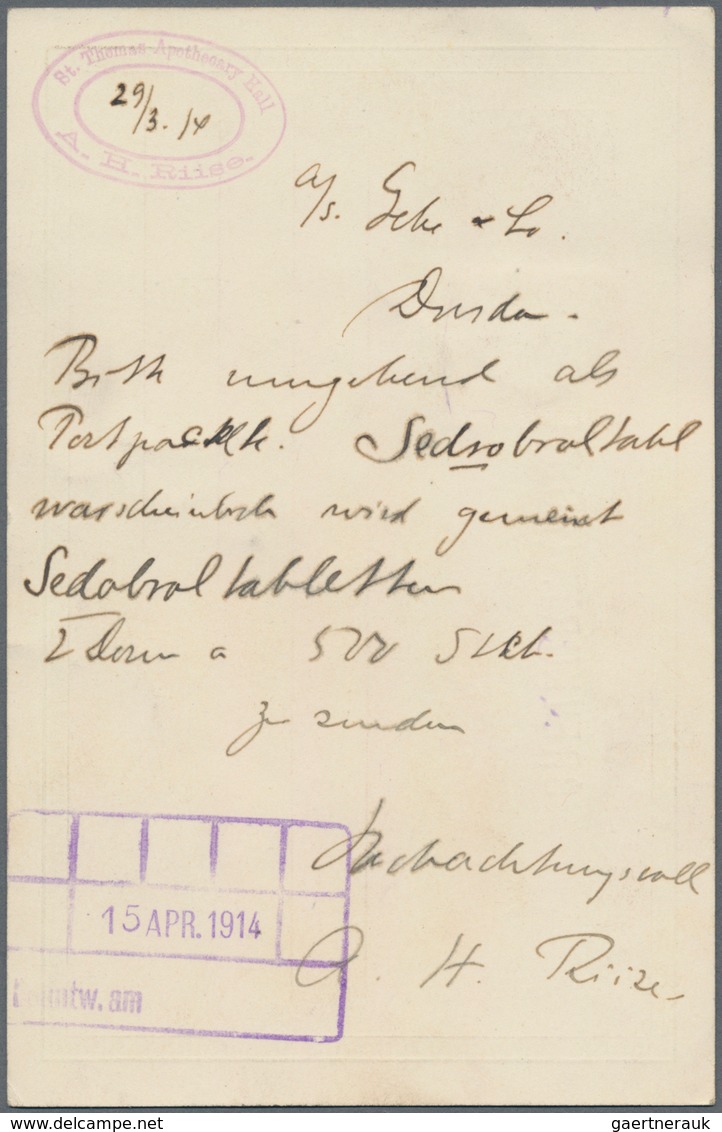 St. Thomas Apothecary Hall
29/3. 14
A. H. Riise.
a/s. Gehe & Co.
Dresden.
Bitte umgehend als
Postpackete. Sedsobroltabl
warscheinlich wird gemeint
Sedobrol tabletten
Dosen a 500 Stck.
zu senden
Hochachtungsvoll
A. H. Riise.
15 APR. 1914
Beantw. am
gaertnerauk